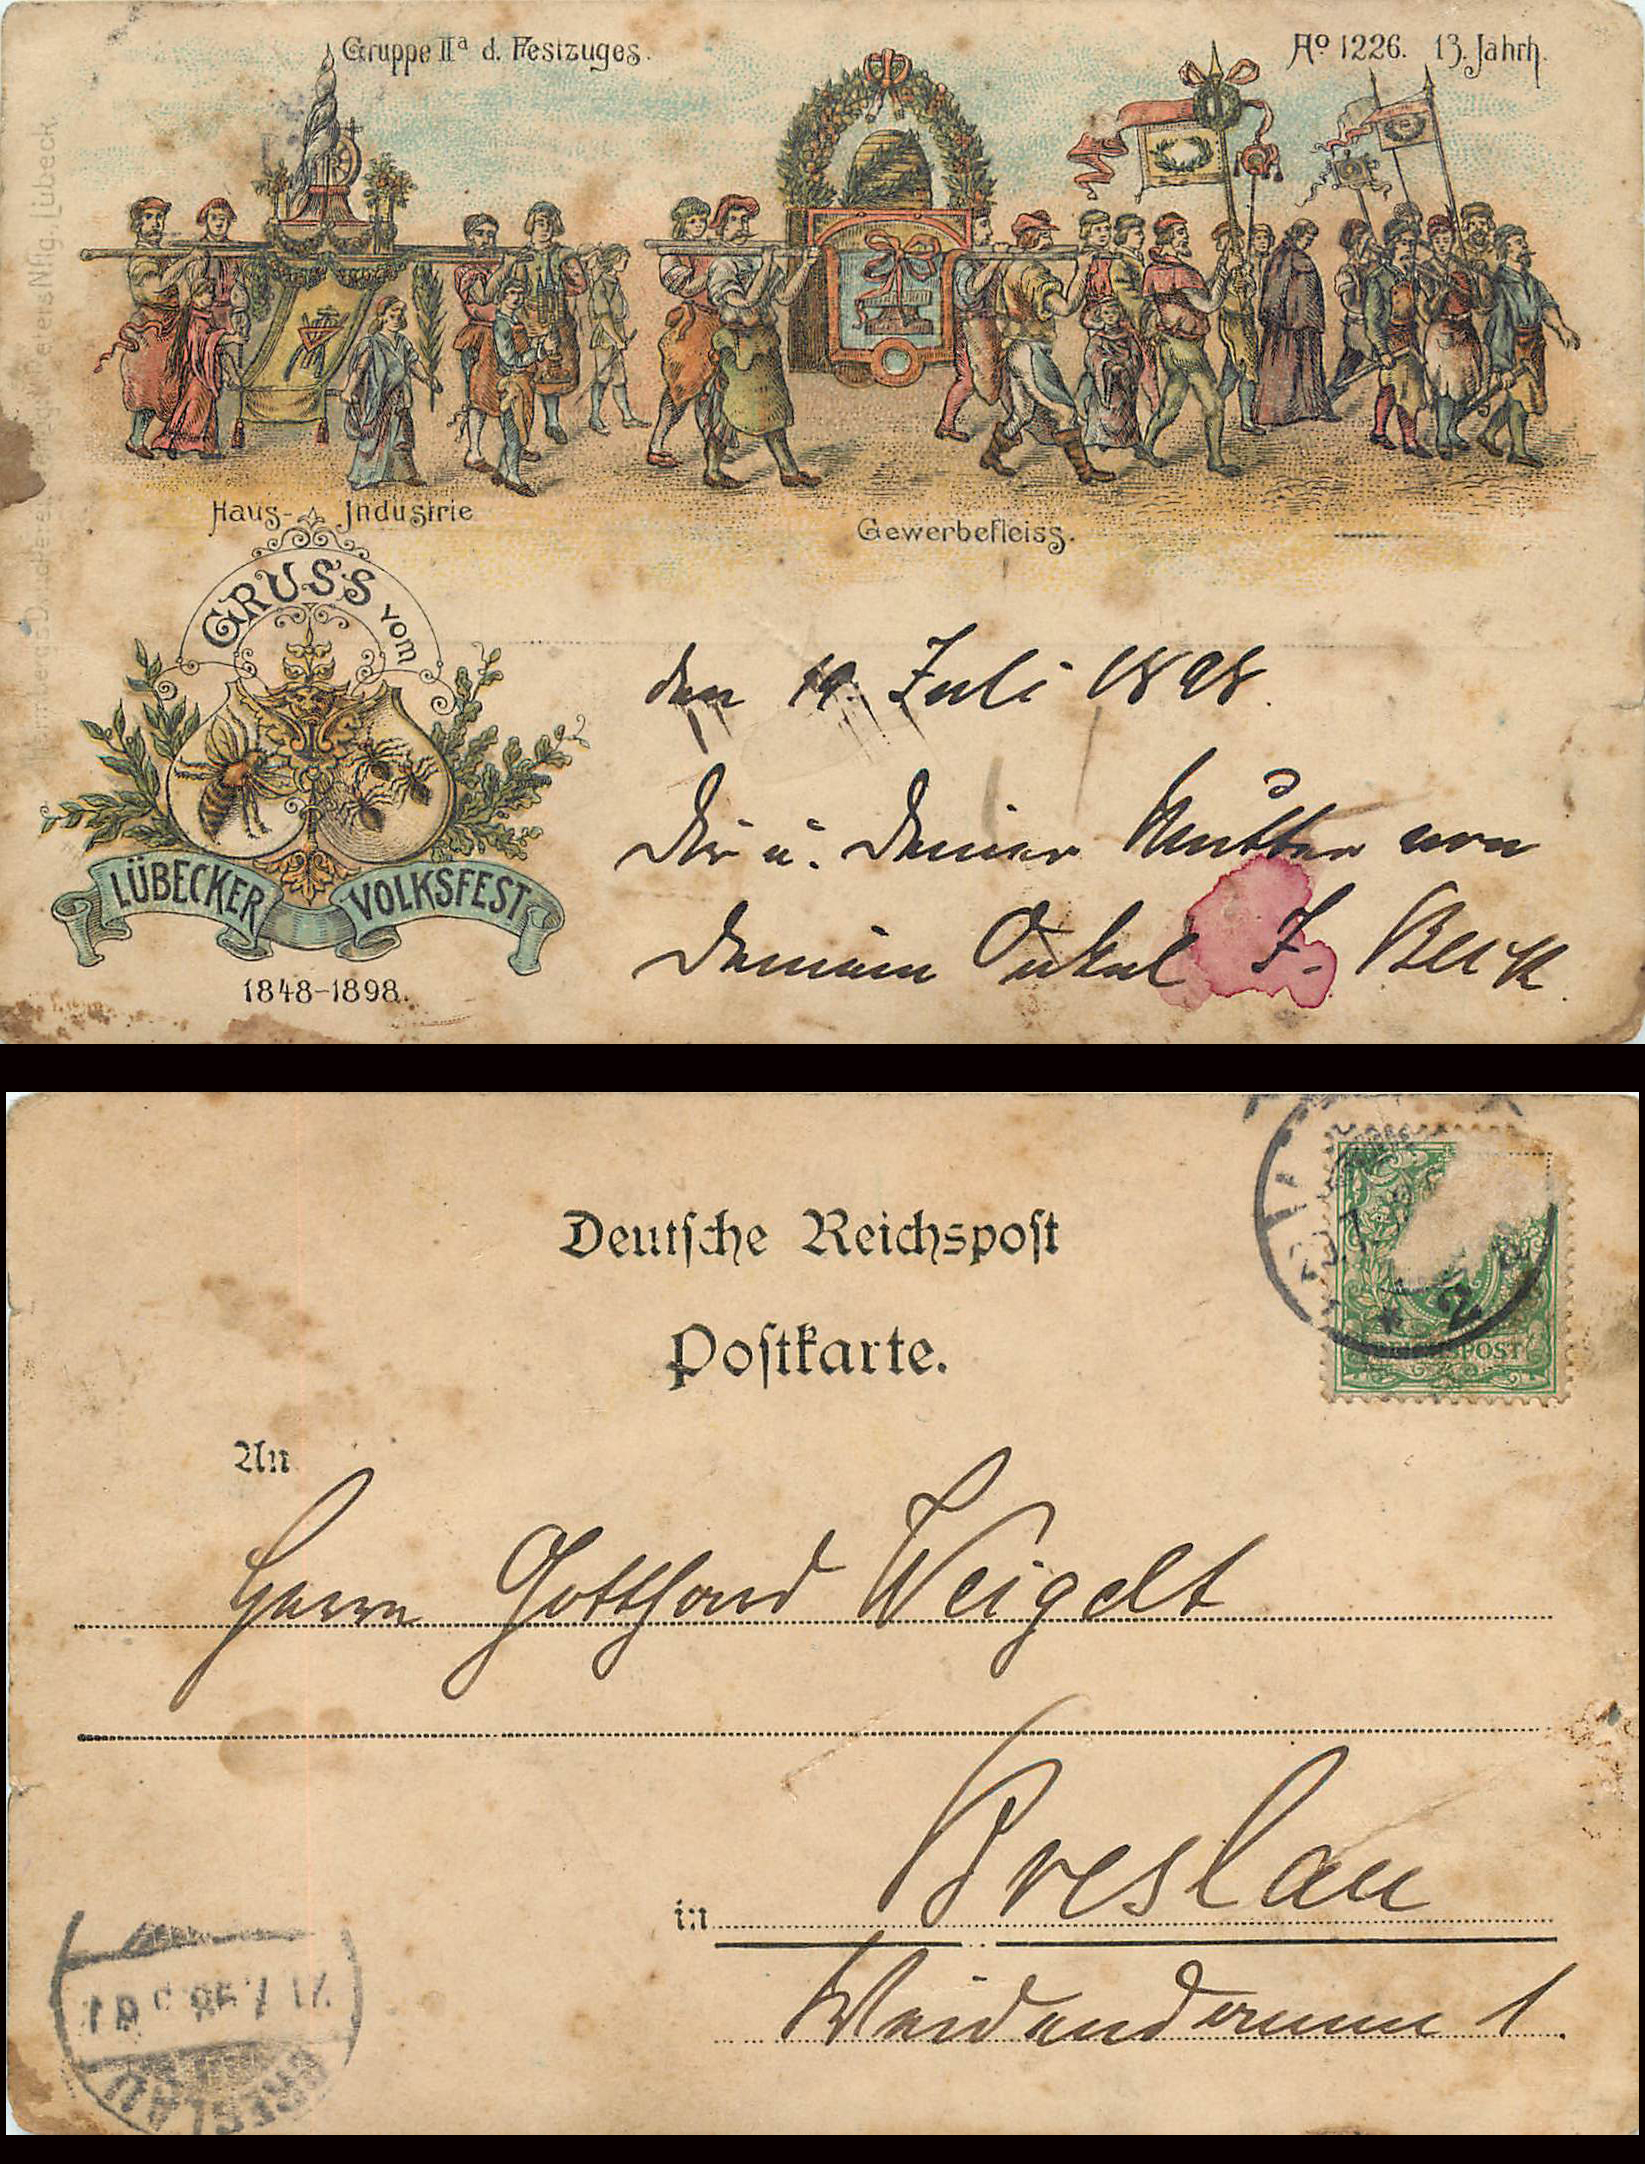 Gruppe IIa d. Festzuges.
Aº 1226. 13. Jahrh.
Lübeck
Haus-Industrie
Gewerbefleiss.
GRUSS vom
LÜBECKER VOLKSFEST
1848-1898.
den 19. Juli 1898.
Dir u. Deiner Mutter von
Deinem Onkel F. Beick.
Deutsche Reichspost
Postkarte.
REICHSPOST
2
An
Herrn Gotthard Weigelt
in Breslau
1.
BRESLAU